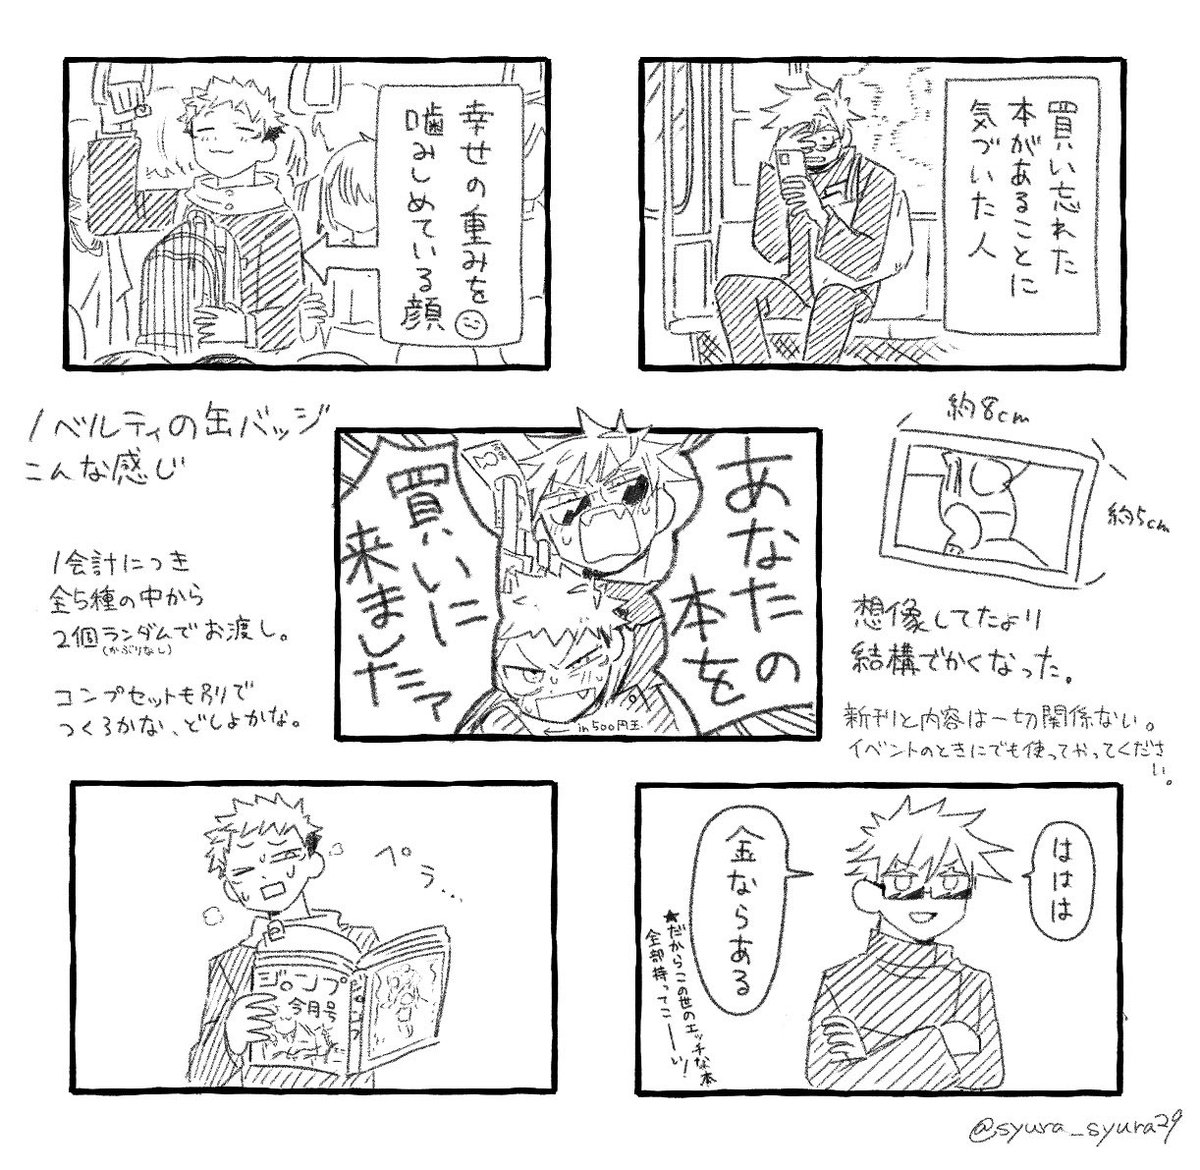 幸せの重みを
噛みしめている顔
買い忘れた
本があることに
気づいた人
ノベルティの缶バッジ
こんな感じ
1会計につき
全5種の中から
2個ランダムでお渡し。
(かぶりなし)
コンプセットも別で
つくろかな、どしよかな。
あなたの
本を
買いに
来ましたァ
in500円玉
約8cm
約5cm
想像してたより
結構でかくなった。
新刊と内容は一切関係ない。
イベントのときにでも使ってやってくださ
い。
ペラ…
ジャンプ
今月号
ジャンプ
ははは
金ならある
★だからこの世のエッチな本
全部持ってこーーい!
@syura_syura29